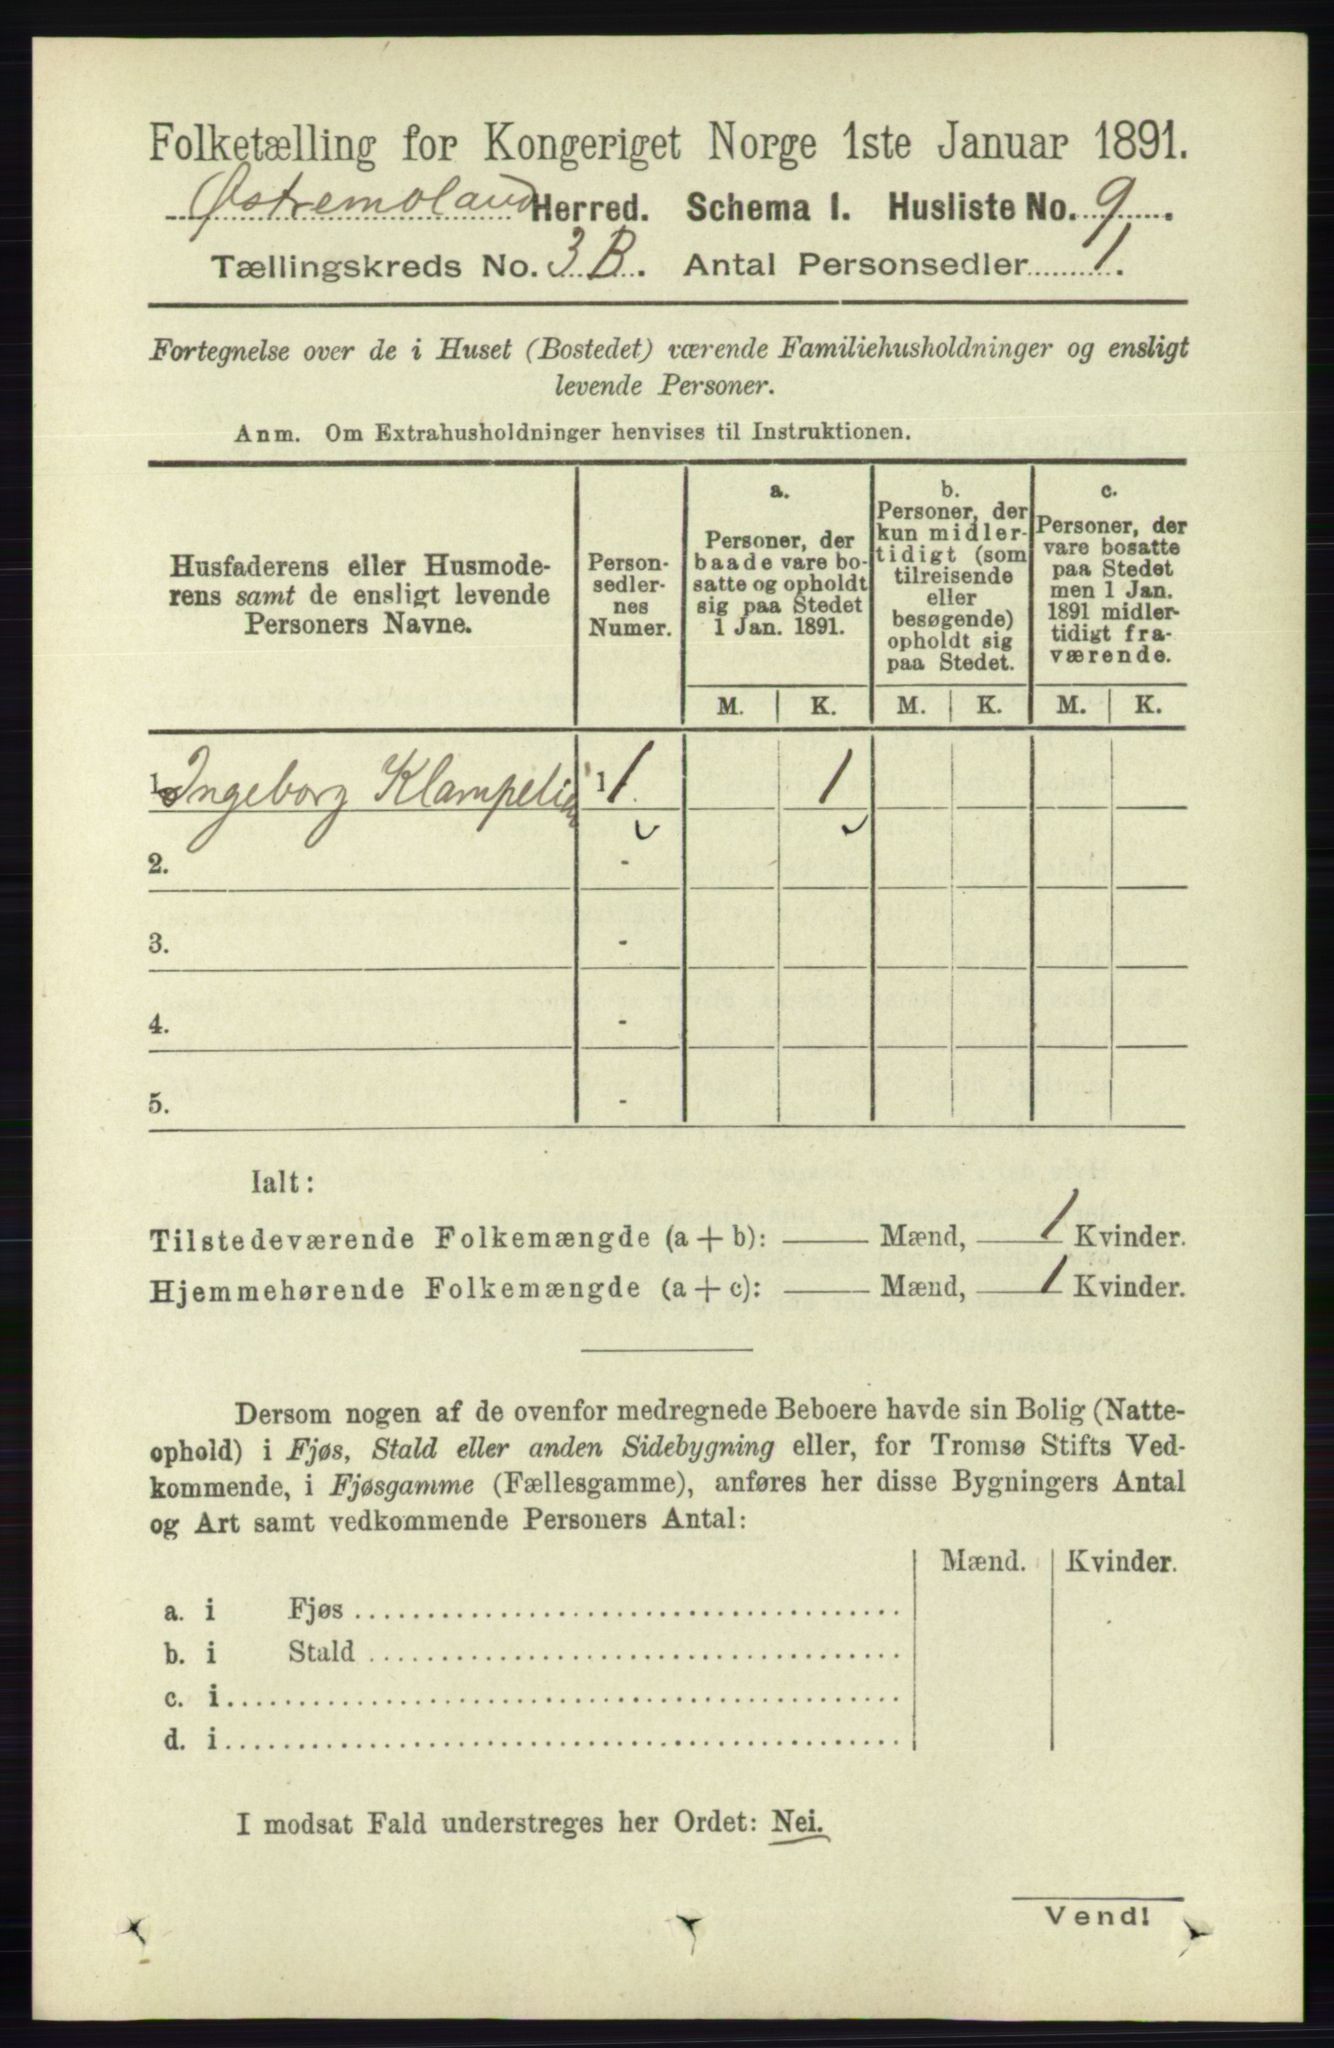 Folketælling for Kongeriget Norge 1ste Januar 1891.
Østremoland Herred. Schema I. Husliste No. 9.
Tællingskreds No. 3 B. Antal Personsedler 1.
Fortegnelse over de i Huset (Bostedet) værende Familiehusholdninger og ensligt
levende Personer.
Anm. Om Extrahusholdninger henvises til Instruktionen.
Husfaderens eller Husmode-
rens samt de ensligt levende
Personers Navne.
Person-
sedler-
nes
Numer.
a.
Personer, der
baade vare bo-
satte og opholdt
sig paa Stedet
1 Jan. 1891.
b.
Personer, der
kun midler-
tidigt (som
tilreisende
eller
besøgende)
opholdt sig
paa Stedet.
c.
Personer, der
vare bosatte
paa Stedet
men 1 Jan.
1891 midler-
tidigt fra-
værende.
M. K. M. K. M. K.
1. Ingeborg Klampelien 1 1 1
2. -
3. -
4. -
5. -
Ialt:
Tilstedeværende Folkemængde (a + b): — Mænd, 1 Kvinder.
Hjemmehørende Folkemængde (a + c): — Mænd, 1 Kvinder.
Dersom nogen af de ovenfor medregnede Beboere havde sin Bolig (Natte-
ophold) i Fjøs, Stald eller anden Sidebygning eller, for Tromsø Stifts Ved-
kommende, i Fjøsgamme (Fællesgamme), anføres her disse Bygningers Antal
og Art samt vedkommende Personers Antal:
Mænd. Kvinder.
a. i Fjøs
b. i Stald
c. i
d. i
I modsat Fald understreges her Ordet: Nei.
Vend!